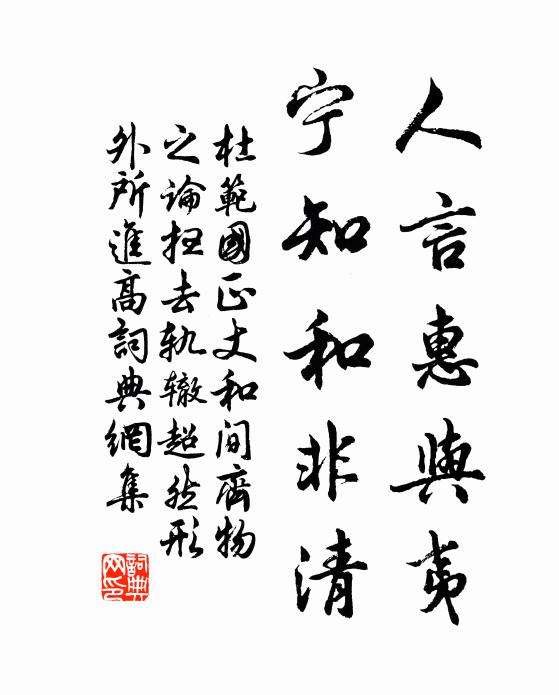 人言惠與夷
宁知和非清
杜範國正丈和閒齋物
之論扫去轨辙超然形
外所進高詞典網集
詞典网印